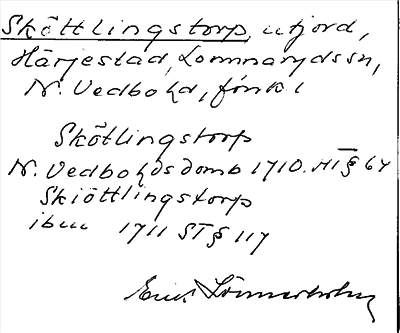 Sköttlingstorp, utjord,
Härjestad, Lommarydssn,
N. Vedbohd, Jönk l
Skötlingstorp
N. Vedbohdsdomb 1710. HT § 64
Skiöttlingstorp
ibm 1711 ST § 117